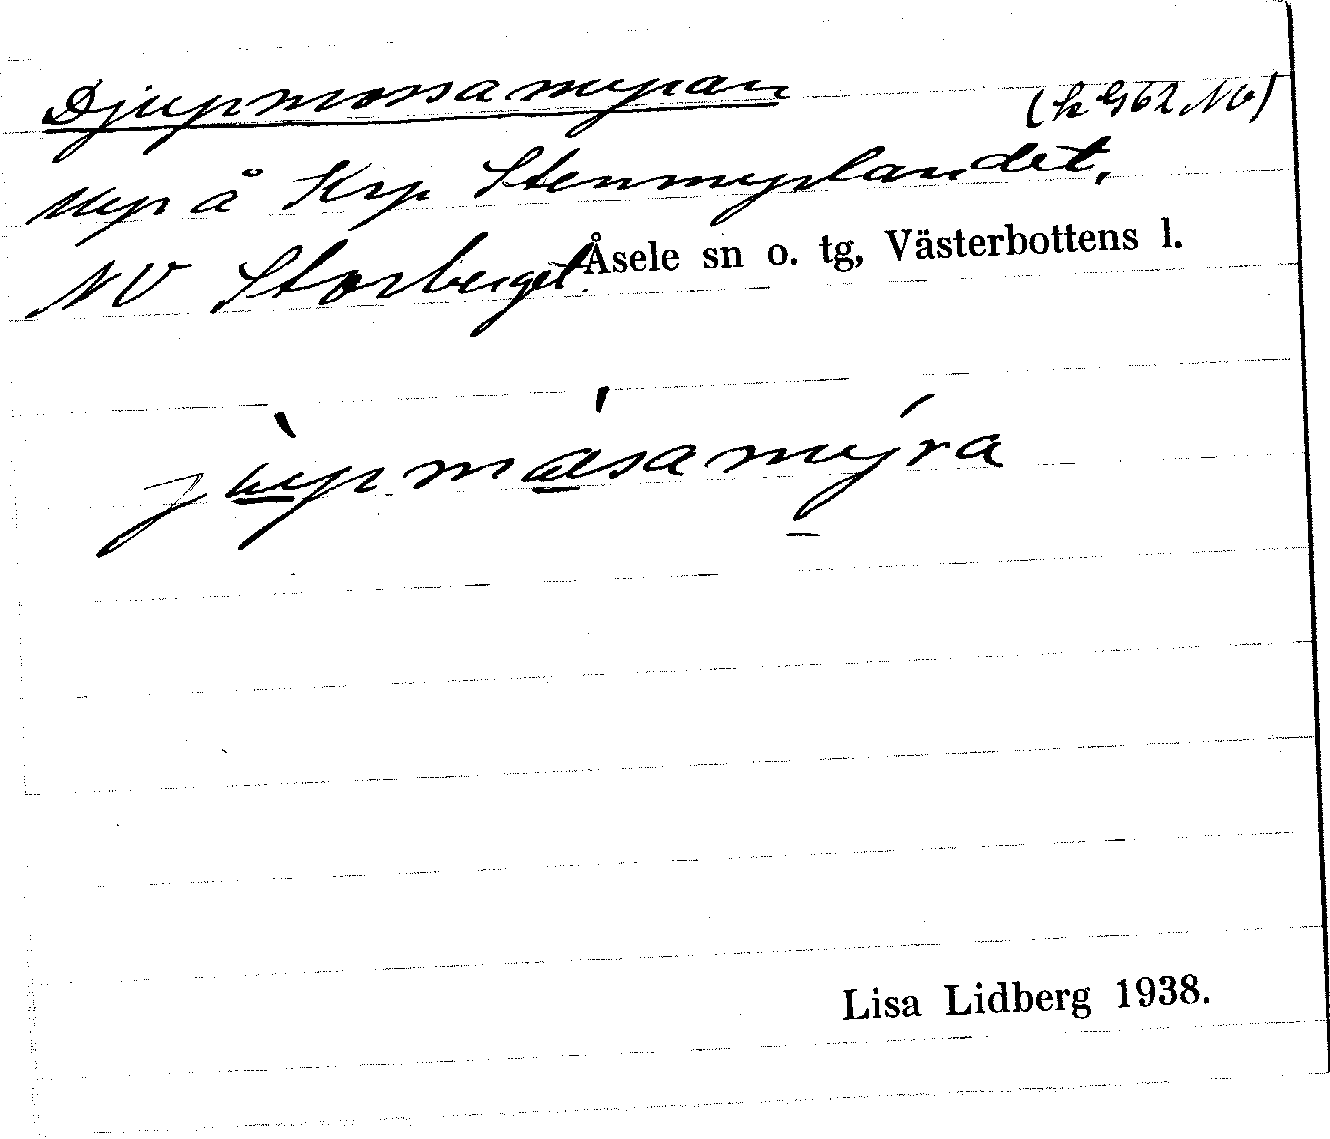 Djupmossamyran
Myr å Krp Stenmyrlandet,
NV Storberget. Åsele sn o. tg, Västerbottens l.
jùpmásamýra
Lisa Lidberg 1938.